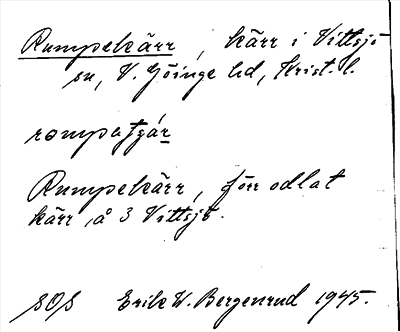 Rumpekärr, kärr i Vittsjö
sn, V. Göinge hd, Krist. l.
Rumpekärr, förr odlat
kärr å 3 Vittsjö.
SOS Erik W. Bergenrud 1945.